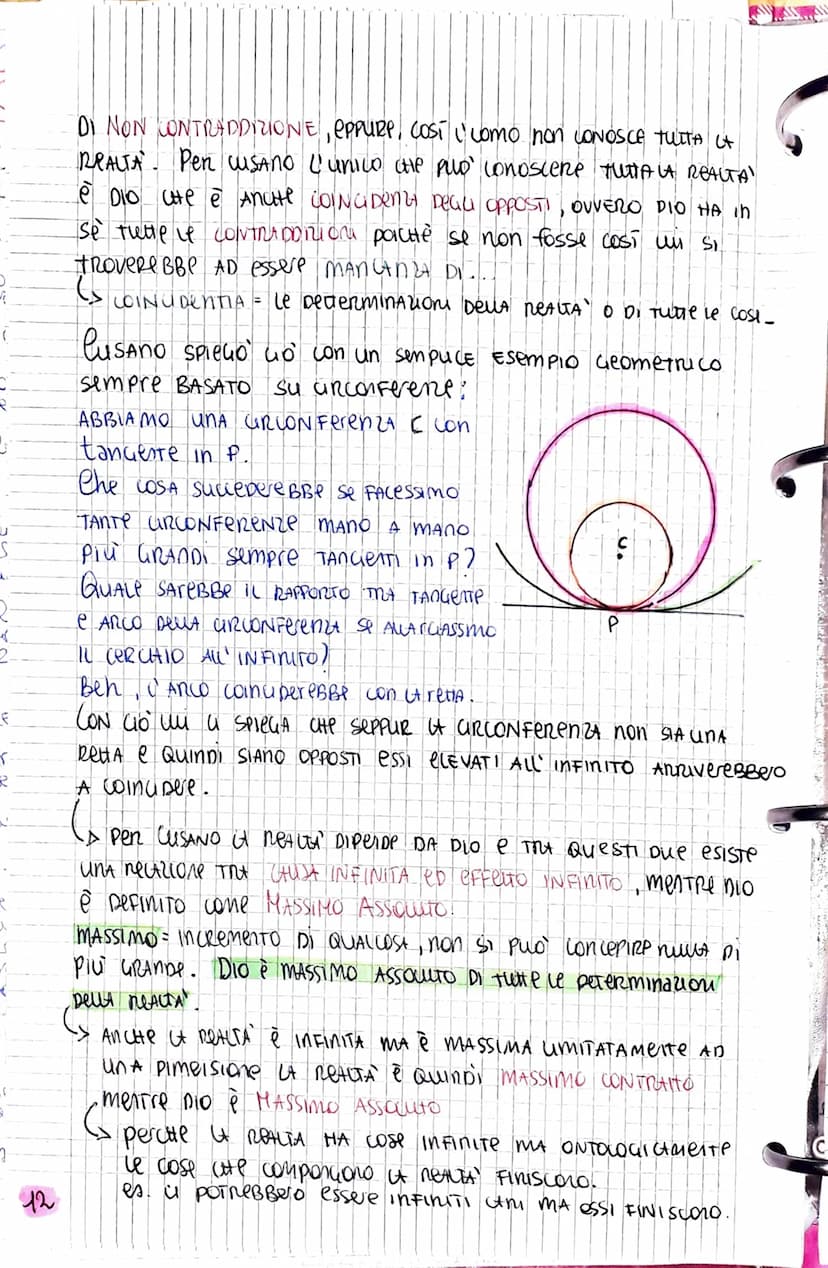 DI NON CONTRADDIZIONE, EPPURE, COSÌ L'UOMO NON CONOSCE TUTTA LA
REALTÀ. PER CUSANO L'UNICO CHE PUÒ CONOSCERE TUTTA LA REALTÀ
È DIO CHE È ANCHE COINCIDENZA DEGLI OPPOSTI, OVVERO DIO HA IN
SÈ TUTTE LE CONTRADDIZIONI POICHÈ SE NON FOSSE COSÌ LUI SI
TROVEREBBE AD ESSERE MANCANZA DI...
↳ COINCIDENTIA = LE DETERMINAZIONI DELLA REALTÀ O DI TUTTE LE COSE
CUSANO SPIEGÒ CIÒ CON UN SEMPLICE ESEMPIO GEOMETRICO
SEMPRE BASATO SU CIRCONFERENZE:
ABBIAMO UNA CIRCONFERENZA C CON
TANGENTE IN P.
CHE COSA SUCCEDEREBBE SE FACESSIMO
TANTE CIRCONFERENZE MANO A MANO
PIÙ GRANDI SEMPRE TANGENTI IN P?
QUALE SAREBBE IL RAPPORTO TRA TANGENTE
E ARCO DELLA CIRCONFERENZA SE ALLARGASSIMO
IL CERCHIO ALL'INFINITO?
BEH, L'ARCO COINCIDEREBBE CON LA RETTA.
C
P
CON CIÒ LUI CI SPIEGA CHE SEPPUR LA CIRCONFERENZA NON SIA UNA
RETTA E QUINDI SIANO OPPOSTI ESSI ELEVATI ALL'INFINITO ARRIVEREBBERO
A COINCIDERE.
↳ PER CUSANO LA REALTÀ DIPENDE DA DIO E TRA QUESTI DUE ESISTE
UNA RELAZIONE TRA CAUSA INFINITA ED EFFETTO INFINITO, MENTRE DIO
È DEFINITO COME MASSIMO ASSOLUTO.
MASSIMO = INCREMENTO DI QUALCOSA, NON SI PUÒ CONCEPIRE NULLA DI
PIÙ GRANDE. DIO È MASSIMO ASSOLUTO DI TUTTE LE DETERMINAZIONI
DELLA REALTÀ.
↳ ANCHE LA REALTÀ È INFINITA MA È MASSIMA LIMITATAMENTE AD
UNA DIMENSIONE LA REALTÀ È QUINDI MASSIMO CONTRATTO
MENTRE DIO È MASSIMO ASSOLUTO
↳ PERCHÈ LA REALTÀ HA COSE INFINITE MA ONTOLOGICAMENTE
LE COSE CHE COMPONGONO LA REALTÀ FINISCONO.
ES. CI POTREBBERO ESSERE INFINITI CANI MA ESSI FINISCONO.
12